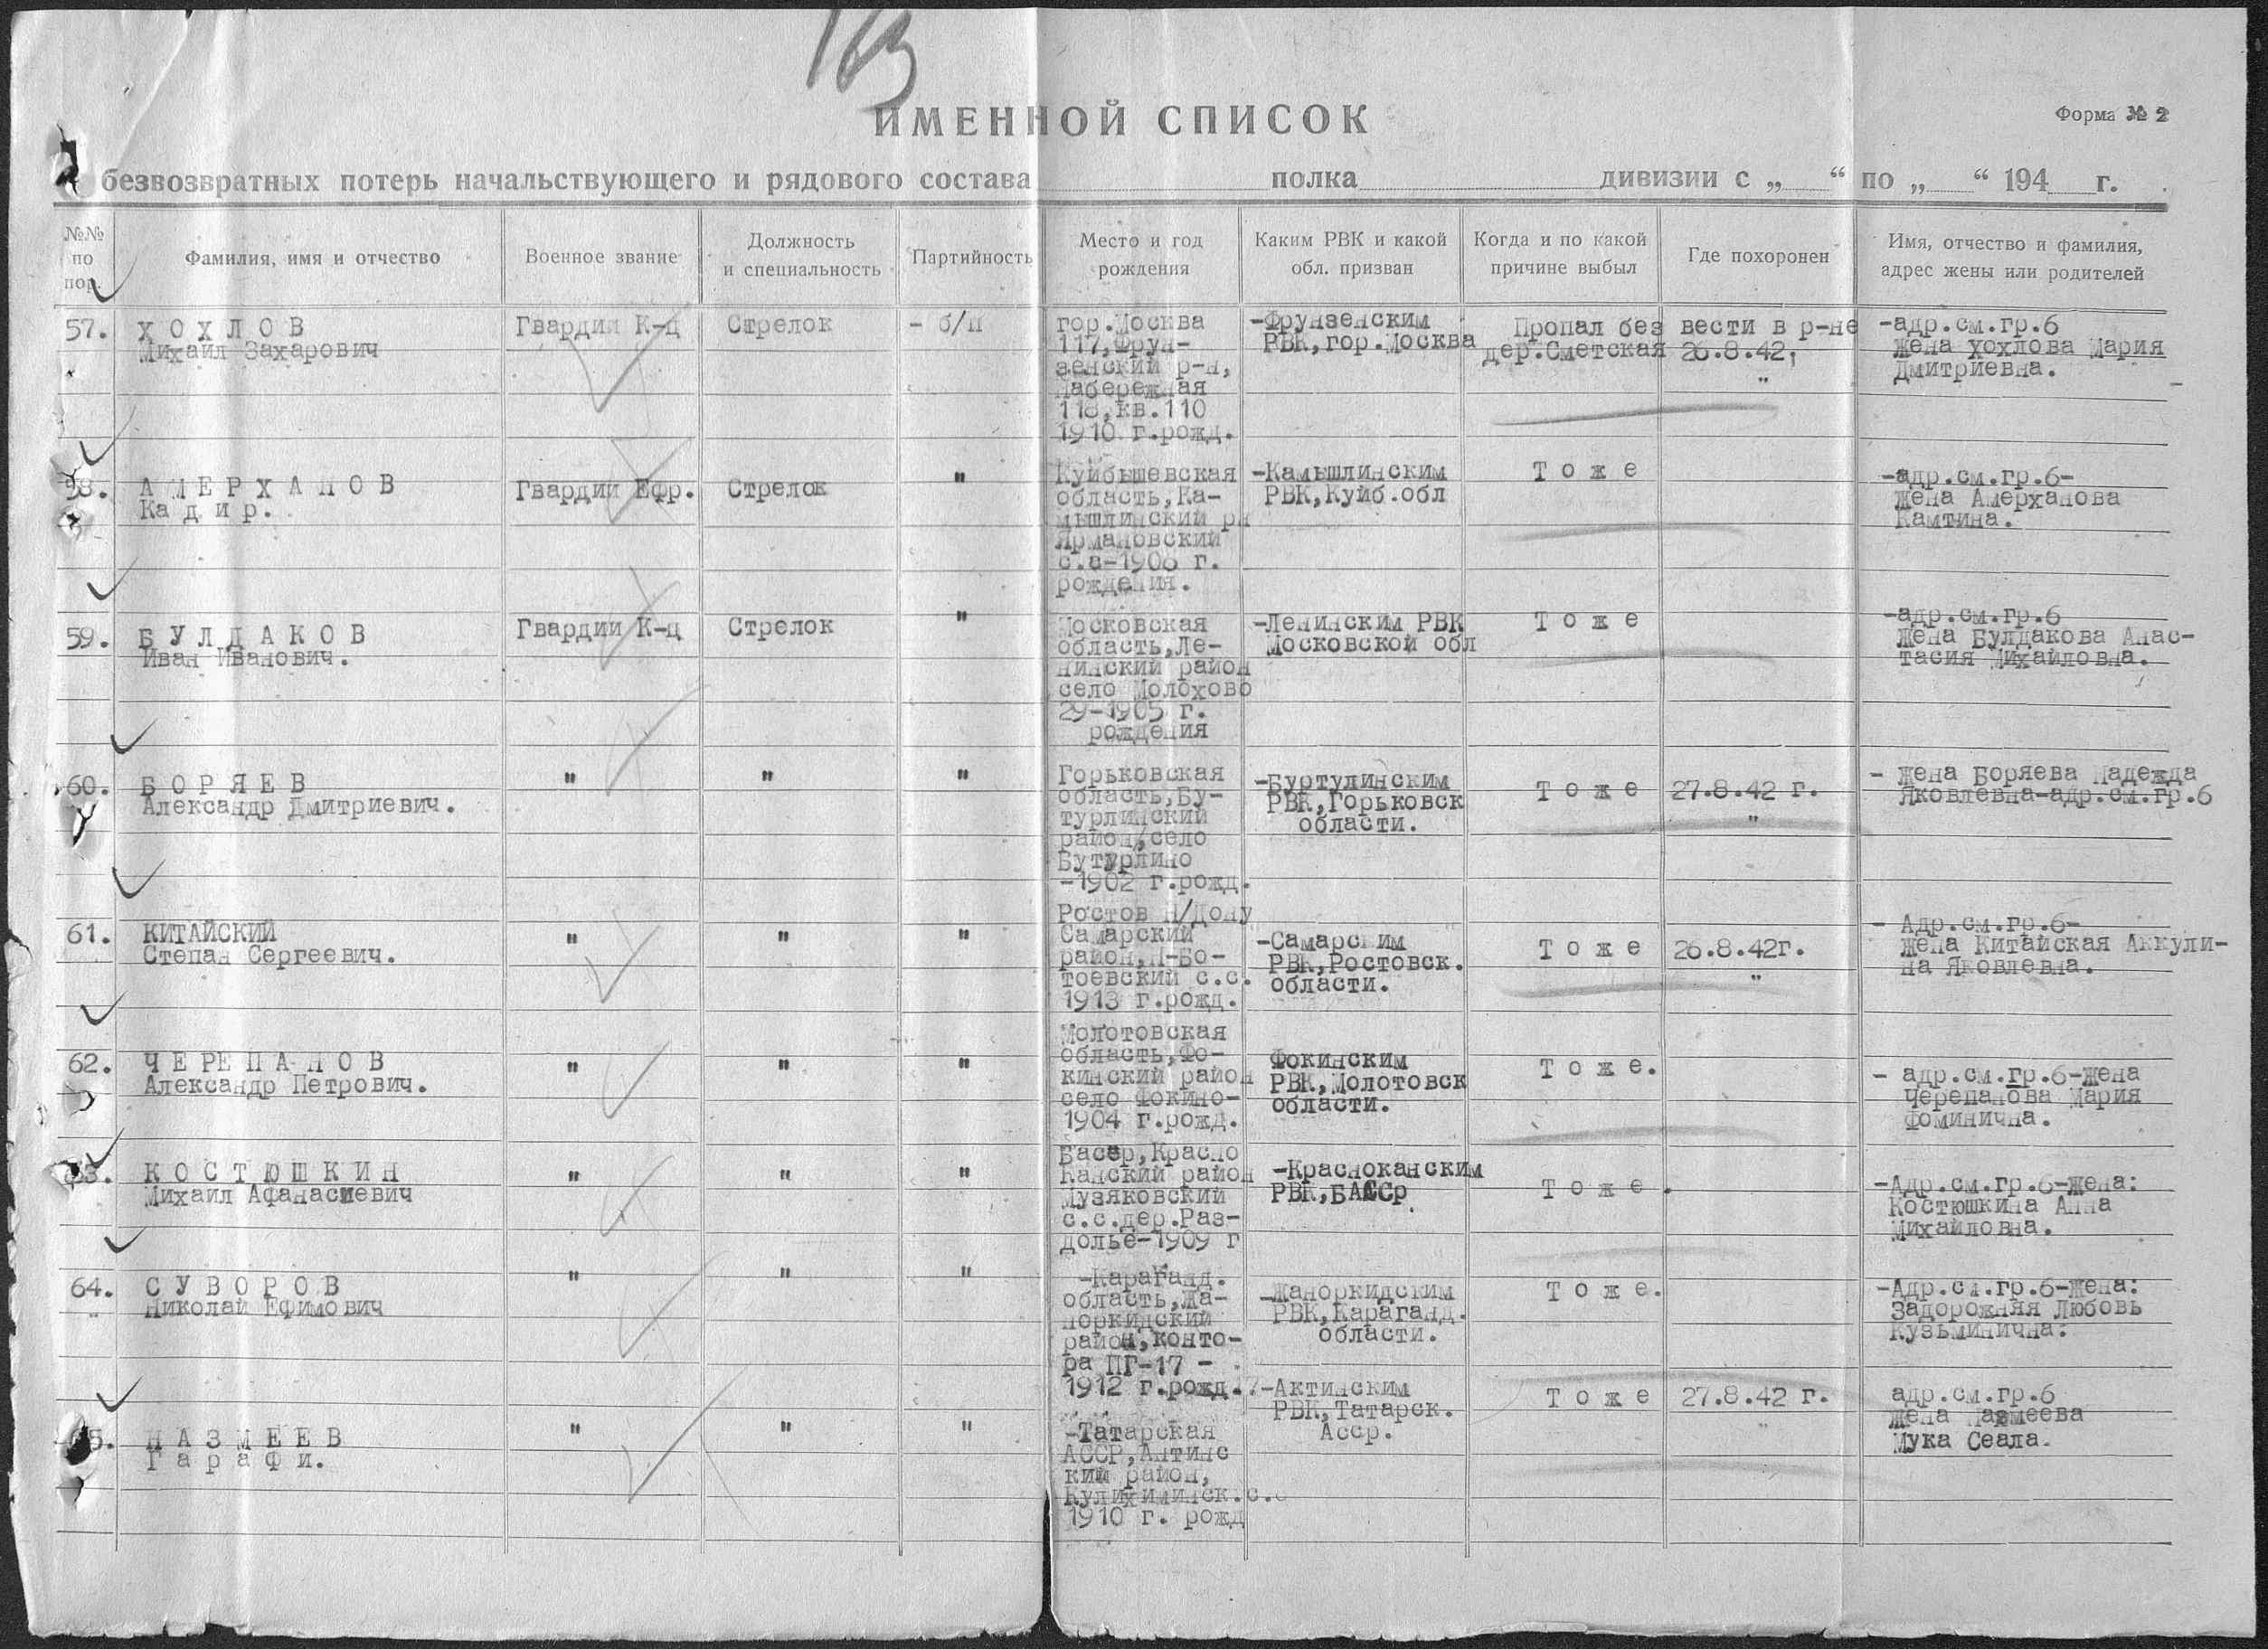 163
ИМЕННОЙ СПИСОК
Форма № 2
безвозвратных потерь начальствующего и рядового состава полка дивизии с „ “ по „ “ 194 г.
№№ по пор.
Фамилия, имя и отчество
Военное звание
Должность и специальность
Партийность
Место и год рождения
Каким РВК и какой обл. призван
Когда и по какой причине выбыл
Где похоронен
Имя, отчество и фамилия, адрес жены или родителей
57.
Х О Х Л О В
Михаил Захарович
Гвардии К-ц
Стрелок
- б/п
гор.Москва
117,Фрун-
зенский р-н,
Набережная
118,кв.110
1910 г.рожд.
-Фрунзенским
РВК,гор.Москва
Пропал без вести в р-не
дер.Сметская 26.8.42,
"
-адр.см.гр.6
Жена Хохлова Мария
Дмитриевна.
58.
А М Е Р Х А Н О В
Ка д и р.
Гвардии Ефр.
Стрелок
"
Куйбышевская
область,Ка-
мышлинский рн
Ярмановский
с.с-1906 г.
рождения.
-Камышлинским
РВК,Куйб.обл
Т о ж е
-адр.см.гр.6-
Жена Амерханова
Камтина.
59.
Б У Л Д А К О В
Иван Иванович.
Гвардии К-ц
Стрелок
"
Московская
область,Ле-
нинский район
село Молохово
29-1905 г.
рождения
-Ленинским РВК
Московской обл
Т о ж е
-адр.см.гр.6
Жена Булдакова Анас-
тасия Михайловна.
60.
Б О Р Я Е В
Александр Дмитриевич.
"
"
"
Горьковская
область,Бу-
турлинский
район,село
Бутурлино
-1902 г.рожд.
-Буртулинским
РВК,Горьковск
области.
Т о ж е
27.8.42 г.
"
- Жена Боряева Надежда
Яковлевна-адр.см.гр.6
61.
КИТАЙСКИЙ
Степан Сергеевич.
"
"
"
Ростов Н/Дону
Самарский
район,Н-Бо-
тоевский с.с.
1913 г.рожд.
-Самарским
РВК,Ростовск.
области.
Т о ж е
26.8.42г.
"
- Адр.см.гр.6-
Жена Китайская Аккули-
на Яковлевна.
62.
Ч Е Р Е П А Н О В
Александр Петрович.
"
"
"
Молотовская
область,Фо-
кинский район
село Фокино-
1904 г.рожд.
Фокинским
РВК,Молотовск
области.
Т о ж е.
- адр.см.гр.6-жена
Черепанова Мария
Фоминична.
63.
К О С Т Ю Ш К И Н
Михаил Афанасиевич
"
"
"
Басср,Красно
Канский район
Музяковский
с.с.дер.Раз-
долье-1909 г
-Красноканским
РВК,БАССр
Т о ж е .
-Адр.см.гр.6-Жена:
Костюшкина Анна
Михайловна.
64.
С У В О Р О В
Николай Ефимович
"
"
"
-Караганд.
область,Жа-
норкидский
район,конто-
ра ПГ-17 -
1912 г.рожд.
-Жаноркидским
РВК,Караганд.
области.
Т о ж е.
-Адр.см.гр.6-Жена:
Задорожняя Любовь
Кузьминична.
65.
Н А З М Е Е В
Г а р а ф и.
"
"
"
-Татарская
АССР,Актинс
кий район,
Кулихиминск.с.с
1910 г. рожд
-Актинским
РВК,Татарск.
Асср.
Т о ж е
27.8.42 г.
"
адр.см.гр.6
Жена Назмеева
Мука Сеала.